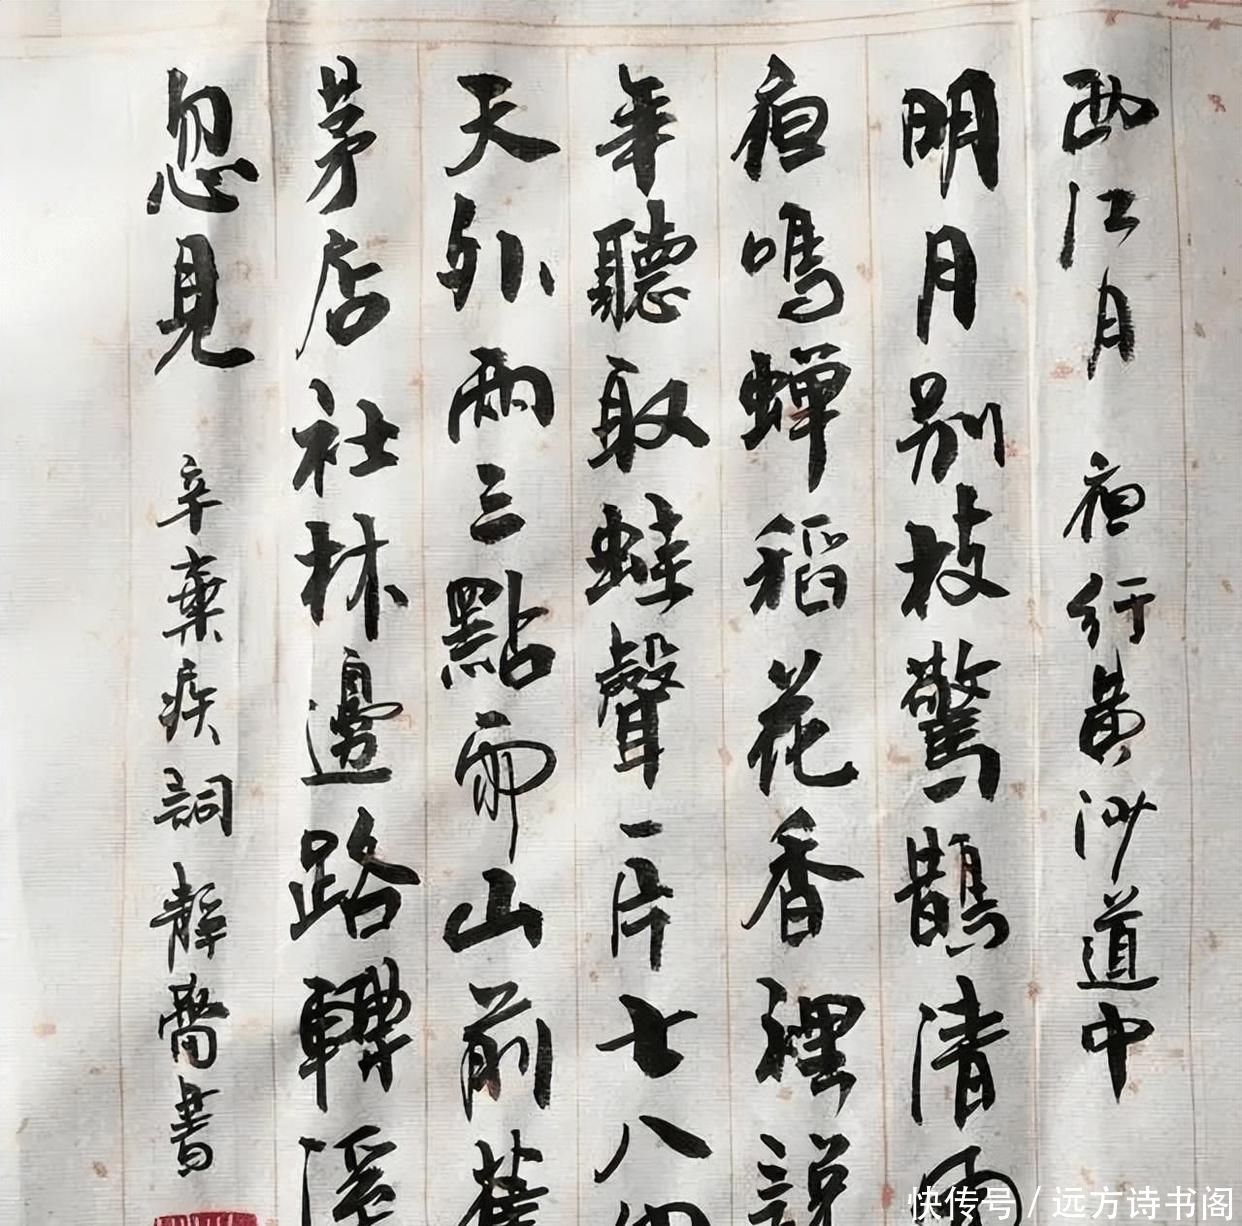 西江月 夜行黄沙道中
明月别枝驚鵲清風
夜鳴蝉稻花香裡説
年聽取蛙聲一片七八
天外兩三點雨山前舊
茅店社林邊路轉溪
忽見 辛棄疾詞 靜齋書
快传号 / 远方诗书阁